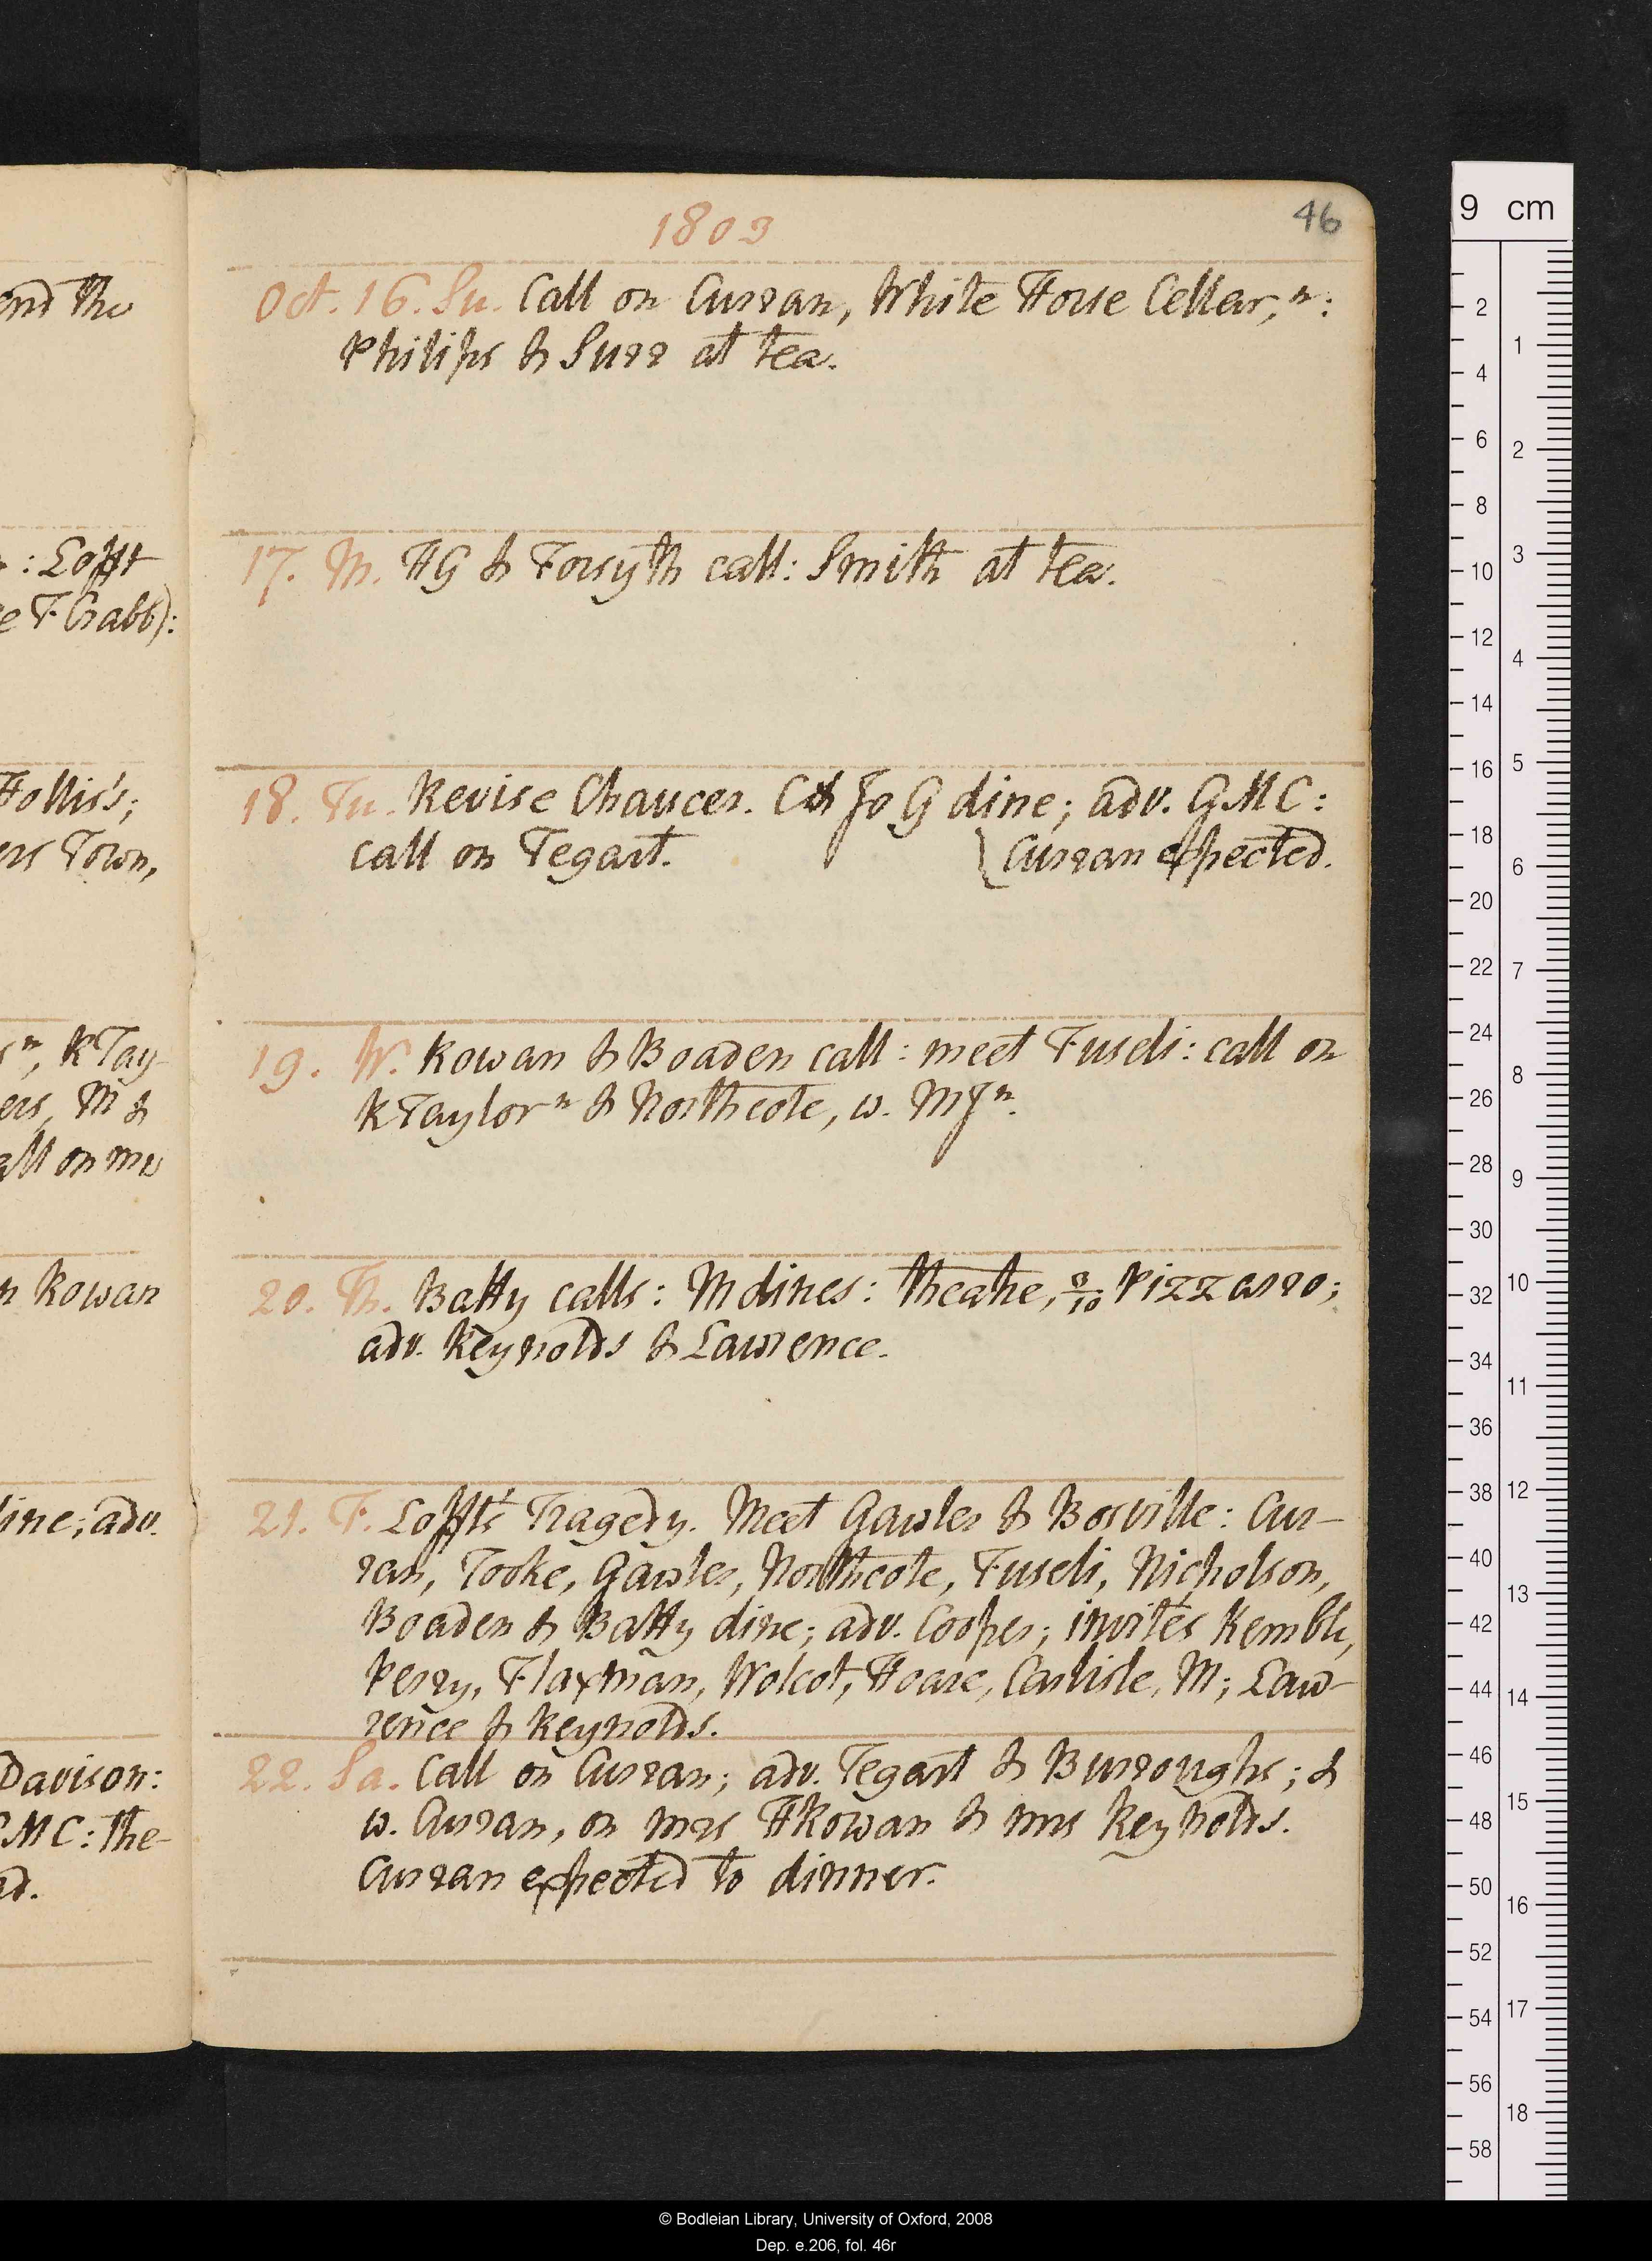 1803
46
Oct. 16. Su. Call on Curran, White Horse Cellar, n:
Philips & Surr at tea.
17. M. HG & Forsyth call: Smith at tea.
18. Tu. Revise Chaucer. C & Jo G dine; adv. GMC:
call on Tegart.
{Curran expected.
19. W. Rowan & Boaden call: meet Fuseli: call on
RTaylor n & Northcote, w. MJ n.
20. Th. Batty calls: M dines: theatre, 2/10 Pizzarro;
adv. Reynolds & Lawrence.
21. F. Lofft's Tragedy. Meet Gawler & Bosville: Cur-
ran, Tooke, Gawler, Northcote, Fuseli, Nicholson,
Boaden & Batty dine; adv. Cooper; invités Kemble,
Perry, Flaxman, Wolcot, Hoare, Carlisle, M; Law-
rence & Reynolds.
22. Sa. Call on Curran; adv. Tegart & Burroughs; &
w. Curran, on mrs HRowan & mrs Reynolds.
Curran expected to dinner.
end the
: Lofft
e T Crabb):
Hollis's;
ers Town,
n, RTay-
ers, M &
all on me
n Rowan
dine; adv.
Davison:
GMC: the-
ad.
9 cm
2
4
6
8
10
12
14
16
18
20
22
24
26
28
30
32
34
36
38
40
42
44
46
48
50
52
54
56
58
1
2
3
4
5
6
7
8
9
10
11
12
13
14
15
16
17
18
© Bodleian Library, University of Oxford, 2008
Dep. e.206, fol. 46r